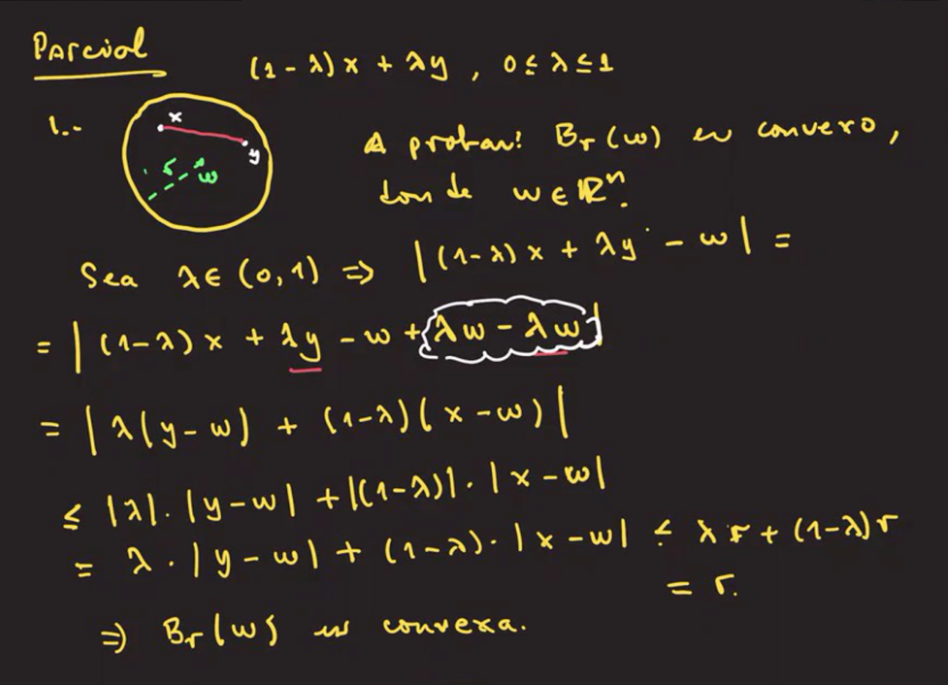 Parcial
(1-λ)x + λy , 0≤λ≤1
1.-
x
y
r
w
A probar: Br(w) es convexo,
donde w∈ℝⁿ.
Sea λ∈(0,1) ⇒ |(1-λ)x + λy - w| =
= |(1-λ)x + λy - w + λw - λw|
= |λ(y-w) + (1-λ)(x-w)|
≤ |λ|·|y-w| + |(1-λ)|·|x-w|
= λ·|y-w| + (1-λ)·|x-w| ≤ λr + (1-λ)r
= r.
⇒ Br(w) es convexa.